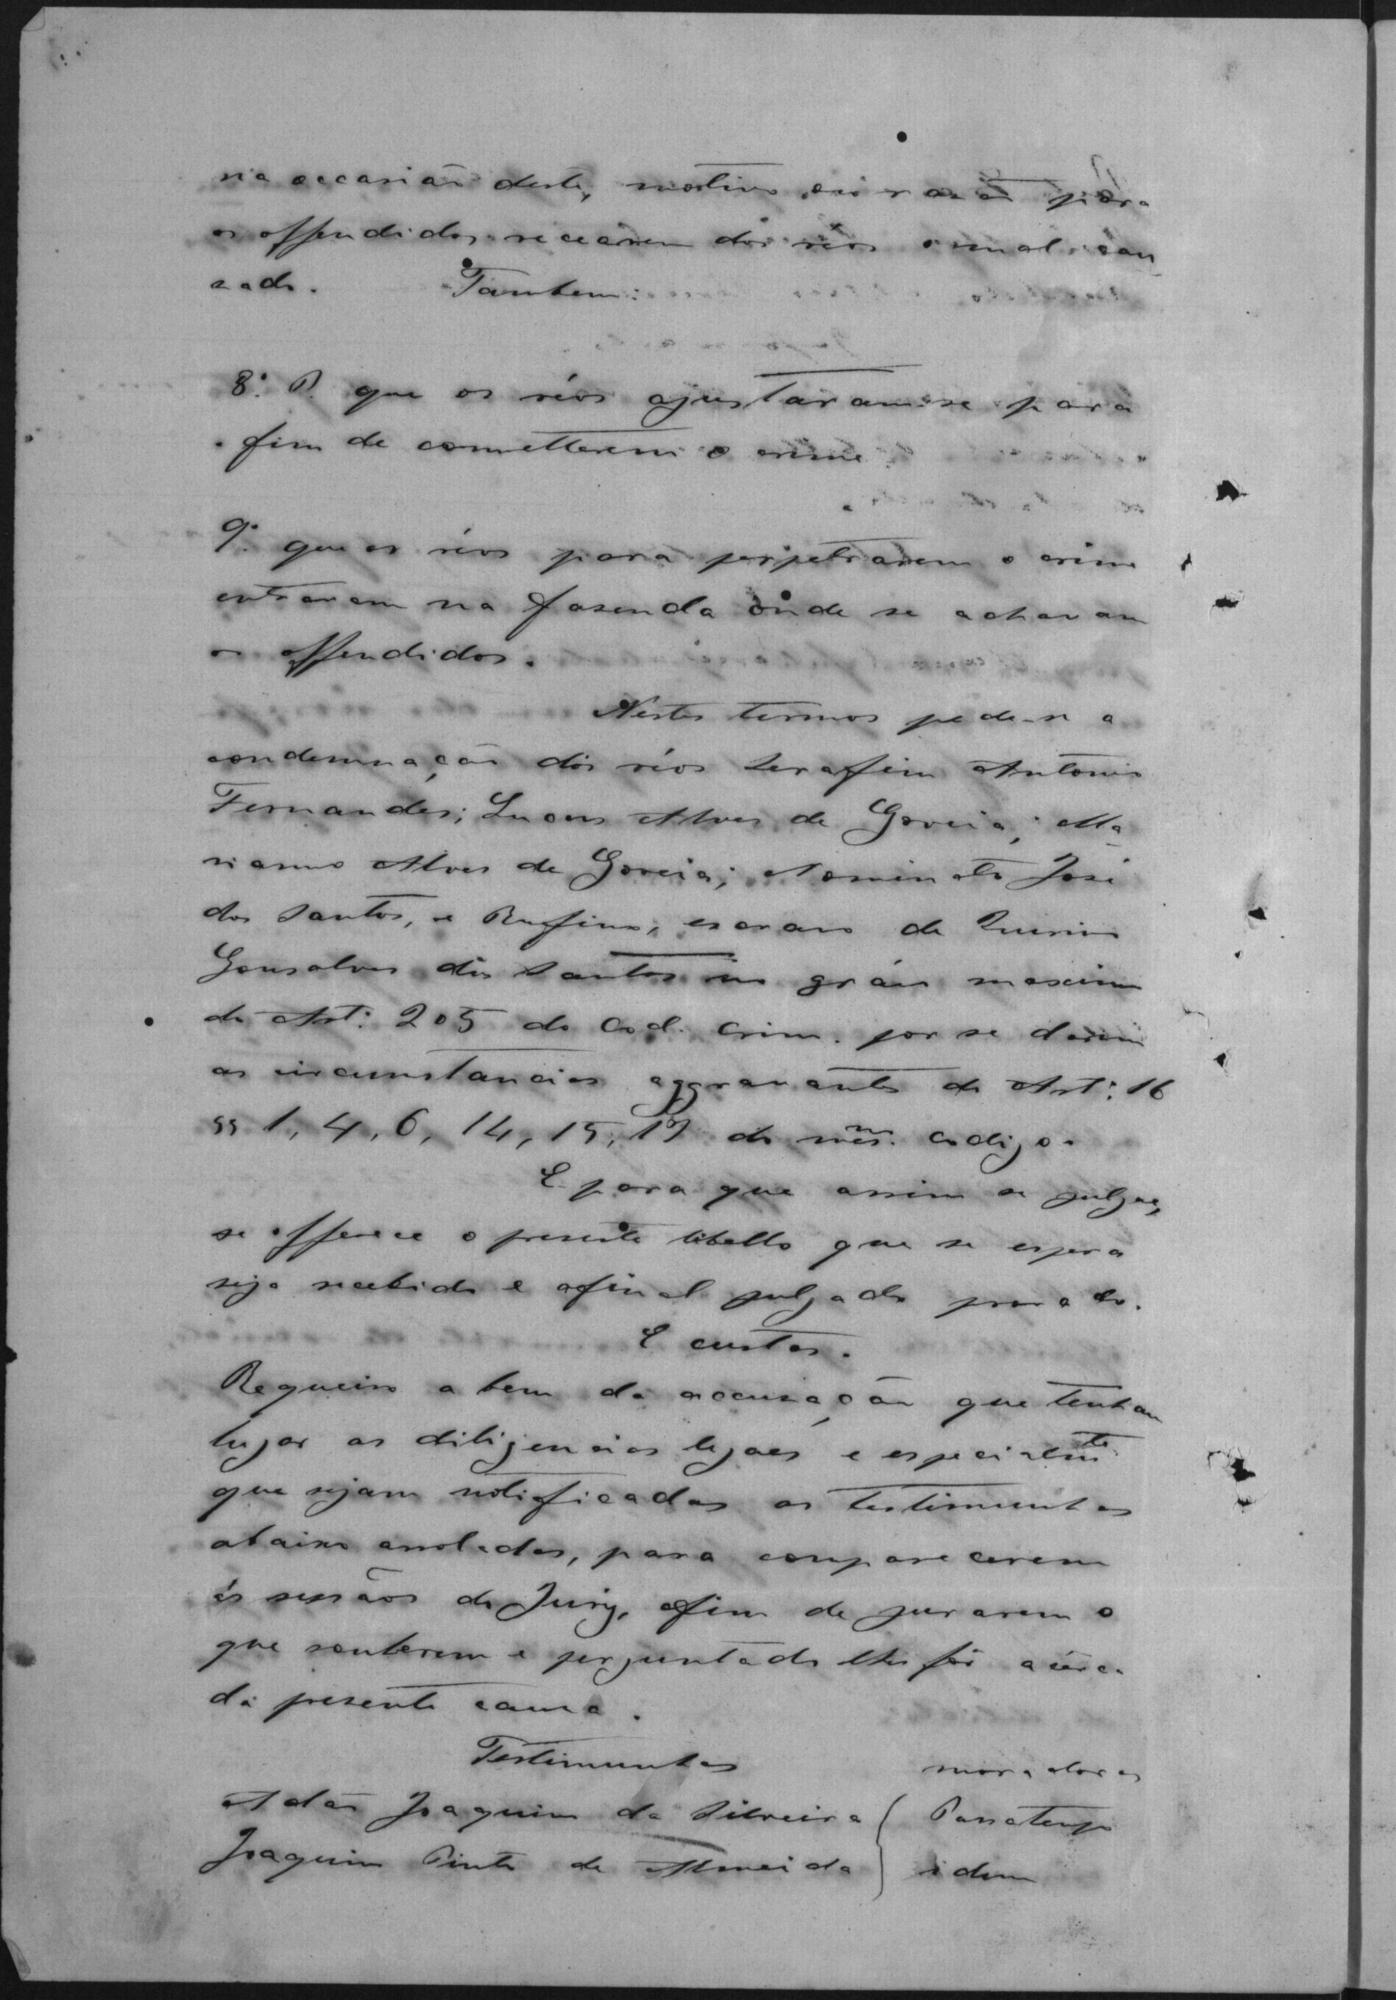 na occasião deste, motivo ou razão para
os offendidos recearem dos réos o mal cau
sado. Tambem:
8º. P. que os réos ajustaram-se para
o fim de cometterem o crime.
9º. que os réos para perpetrarem o crime
entraram na fasenda onde se achavam
os offendidos.
Nestes termos pede-se a
condemnação dos réos Serafim Antonio
Fernandes; Lucas Alves de Goveia; Ma
rianno Alves de Goveia; Nominato José
dos Santos, e Rufino, escravo de Quirino
Gonsalves dos Santos no gráo maximo
do Art: 205 do Cod. Crim. por se darem
as circumstancias aggravantes do Art: 16
§§ 1, 4, 6, 14, 15, 17 do mesm. Codigo.
E para que assim se julgue,
se offerece o presente libello que se espera
seja recebido e afinal julgado provado.
E custas.
Requeiro a bem da accusação que tenham
lugar as diligencias legaes e especialmte
que sejam notificadas as testimunhas
abaixo arroladas, para comparecerem
ás sessãos do Jury, afim de jurarem o
que souberem e perguntado lhes for acerca
da presente causa.
Testimunhas moradores
Adão Joaquim da Silveira Passatempo
Joaquim Pinto de Almeida idem